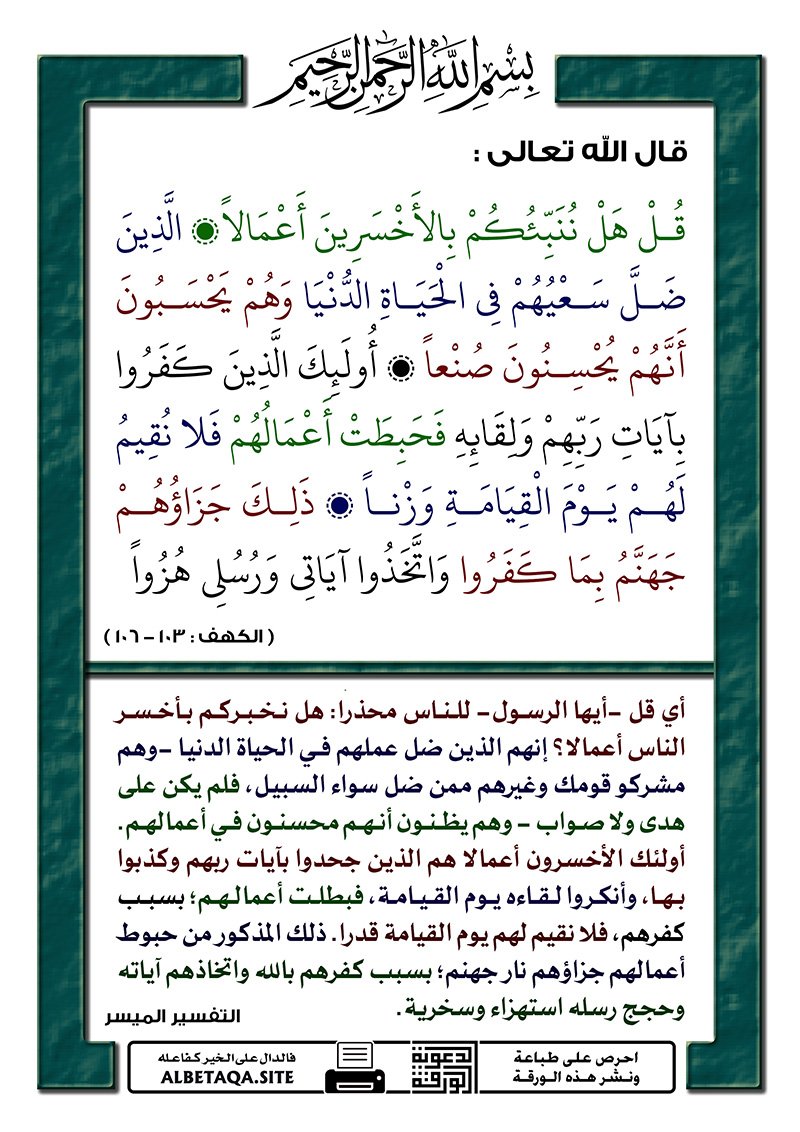 بِسْمِ اللَّهِ الرَّحْمَٰنِ الرَّحِيمِ
قال الله تعالى :
قُــلْ هَلْ نُنَبِّئُكُمْ بِالأَخْسَرِينَ أَعْمَالاً الَّذِينَ
ضَــلَّ سَــعْيُهُمْ فِي الْحَيَــاةِ الدُّنْيَا وَهُمْ يَحْسَــبُونَ
أَنَّهُمْ يُحْسِــنُونَ صُنْعاً أُولَئِكَ الَّذِينَ كَفَرُوا
بِآيَاتِ رَبِّهِمْ وَلِقَائِهِ فَحَبِطَتْ أَعْمَالُهُمْ فَلا نُقِيمُ
لَهُــمْ يَــوْمَ الْقِيَامَــةِ وَزْنــاً ذَلِــكَ جَزَاؤُهُــمْ
جَهَنَّمُ بِمَا كَفَرُوا وَاتَّخَذُوا آيَاتِي وَرُسُلِي هُزُواً
( الكهف : ١٠٣ – ١٠٦ )
أي قل -أيها الرسول- للناس محذرا: هل نخبركم بأخسر
الناس أعمالا؟ إنهم الذين ضل عملهم في الحياة الدنيا -وهم
مشركو قومك وغيرهم ممن ضل سواء السبيل، فلم يكن على
هدى ولا صواب - وهم يظنون أنهم محسنون في أعمالهم.
أولئك الأخسرون أعمالا هم الذين جحدوا بآيات ربهم وكذبوا
بها، وأنكروا لقاءه يوم القيامة، فبطلت أعمالهم؛ بسبب
كفرهم، فلا نقيم لهم يوم القيامة قدرا. ذلك المذكور من حبوط
أعمالهم جزاؤهم نار جهنم؛ بسبب كفرهم بالله واتخاذهم آياته
وحجج رسله استهزاء وسخرية.
التفسير الميسر
احرص على طباعة
ونشر هذه الورقة
الورقة الدعوية
فالدال على الخير كفاعله
ALBETAQA.SITE